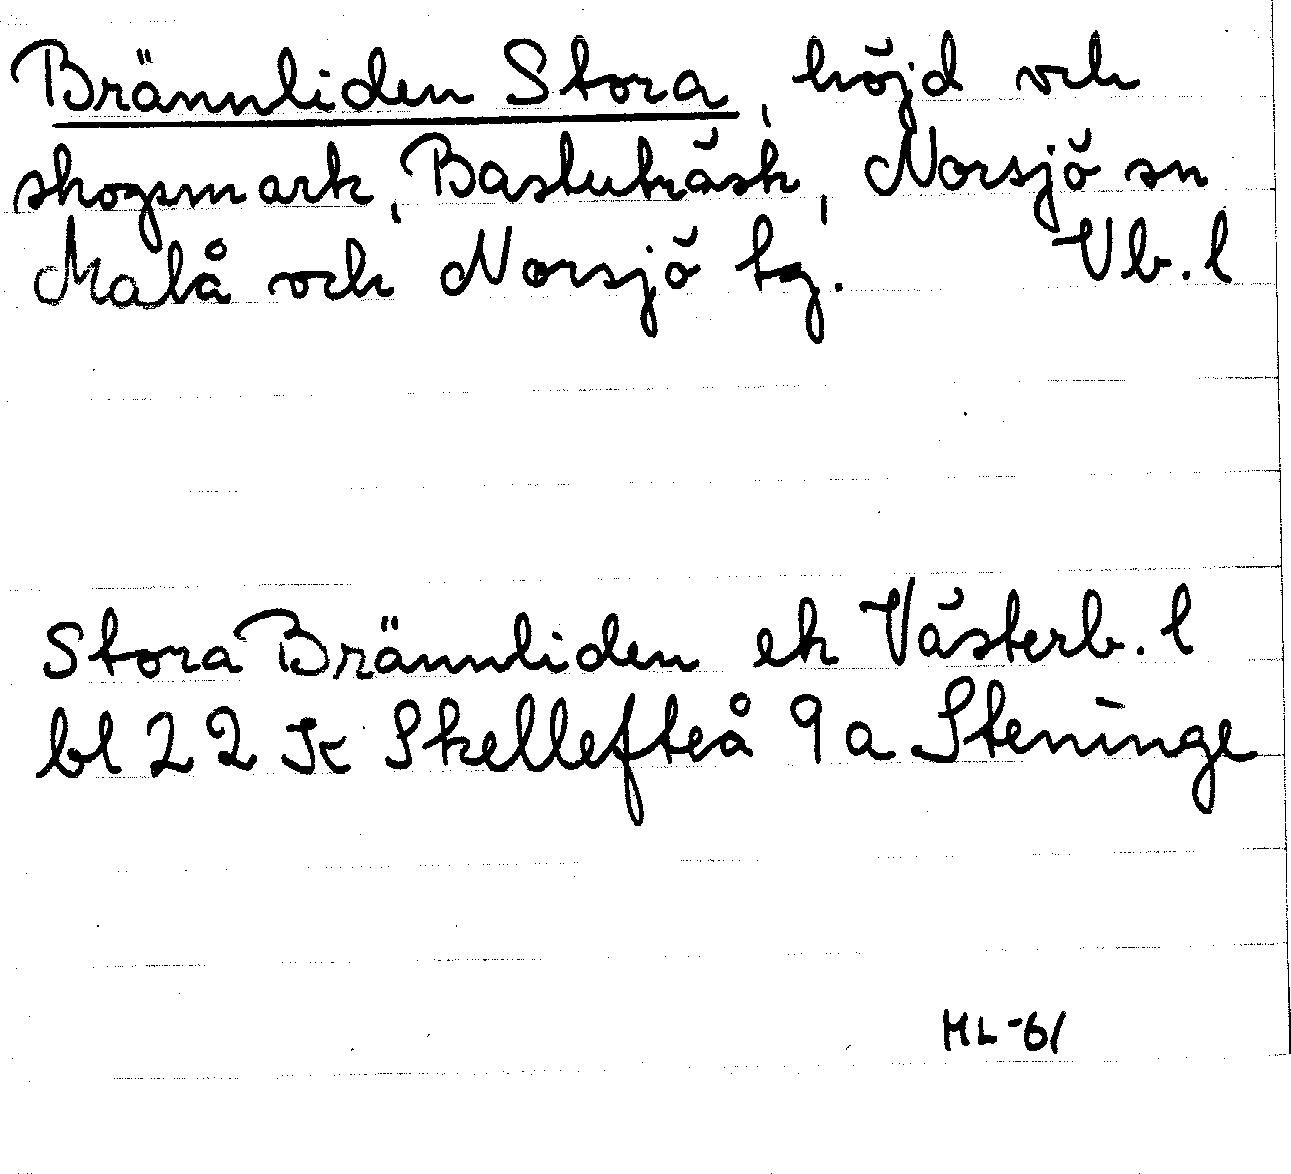 Brännliden Stora, höjd och
skogsmark, Bastuträsk, Norsjö sn
Malå och Norsjö tg. Vb. l
Stora Brännliden ek Västerb. l
bl 22 K Skellefteå 9a Steninge
HL -61